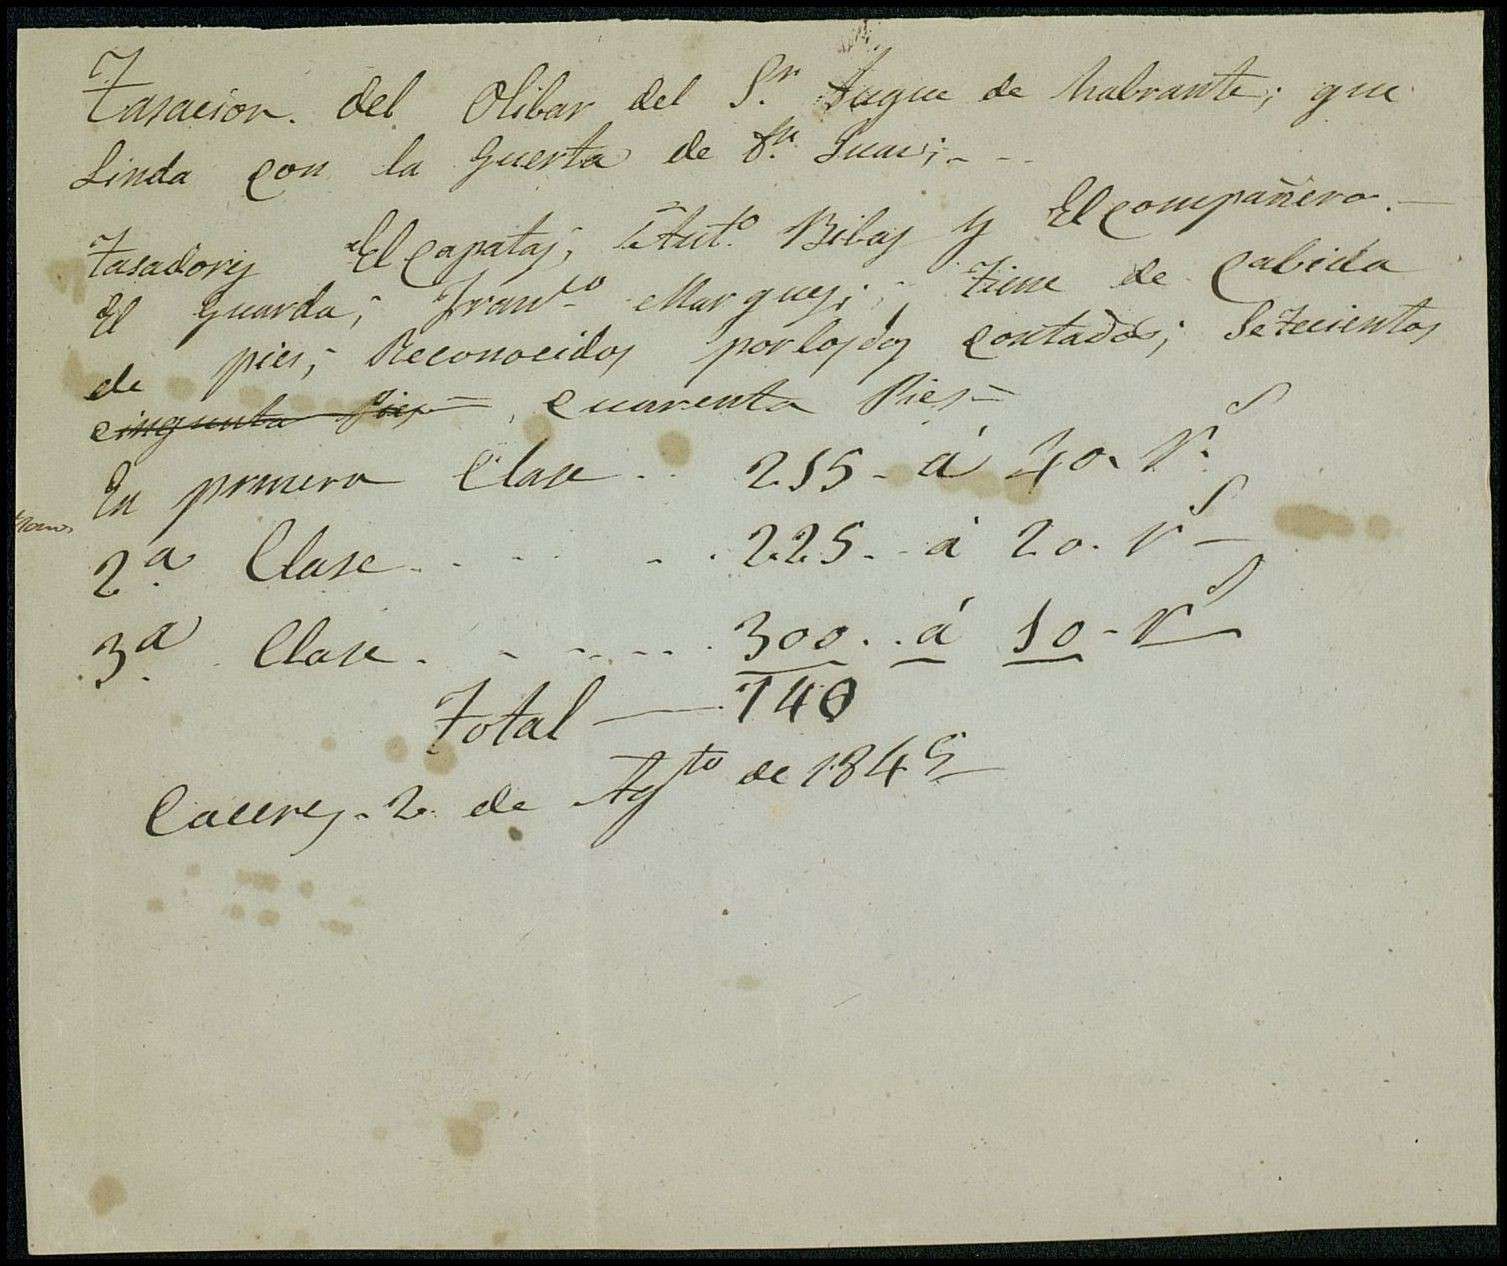 Tasacion. del Olibar del Sr. Duque de Habrante; que
Linda con la Guerta de Sn. Juan; - -
Tasadores El capatas; Antº. Bibas y El compañero. -
El Guarda; Franco Marques; - Tiene de Cabida
de pies; Reconocidos por los dos contados; Setecientos
cinquenta Pies = , cuarenta Pies =
En primera Clase . . 215 - á 40. rs.
2.ª Clase . . . . . 225. . á 20. rs -
3.ª Clase . - - - - . . 300. . á 10 - rs
Total — 740
Caceres. 2 de Agto de 1845